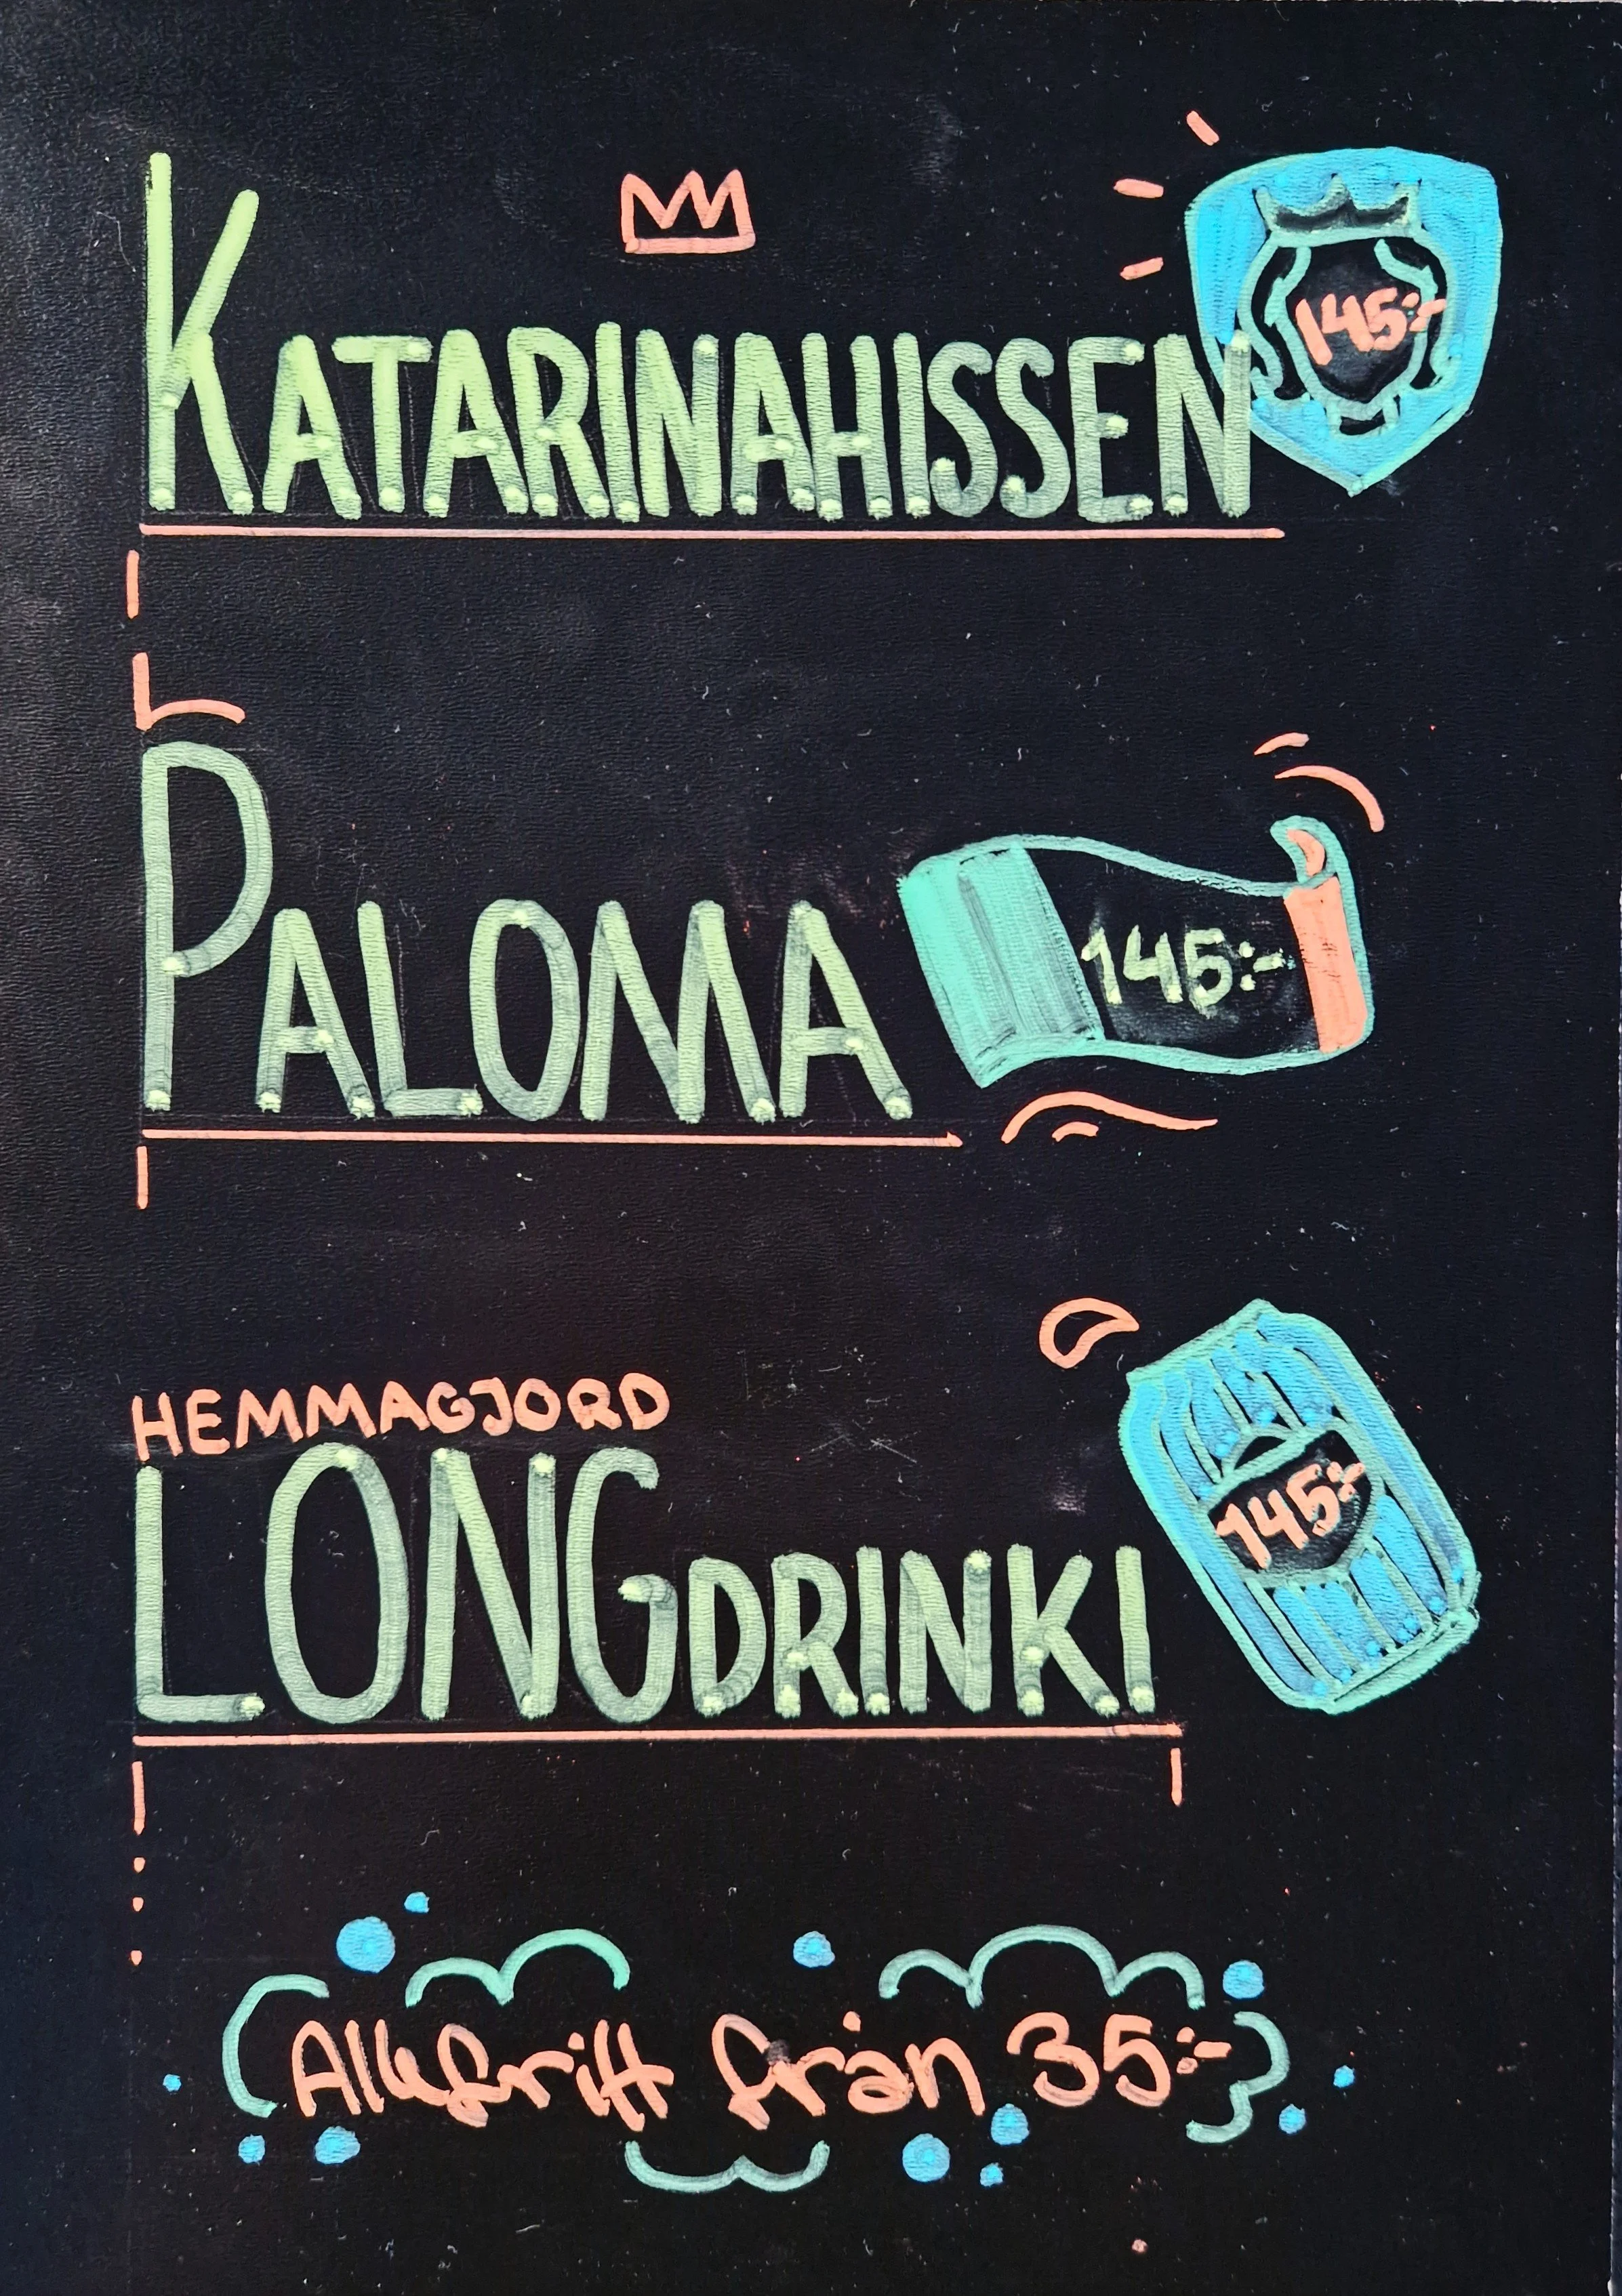 KATARINAHISSEN
145:-
PALOMA
145:-
HEMMAGJORD
LONGDRINKI
145:-
Alkofritt från 35:-